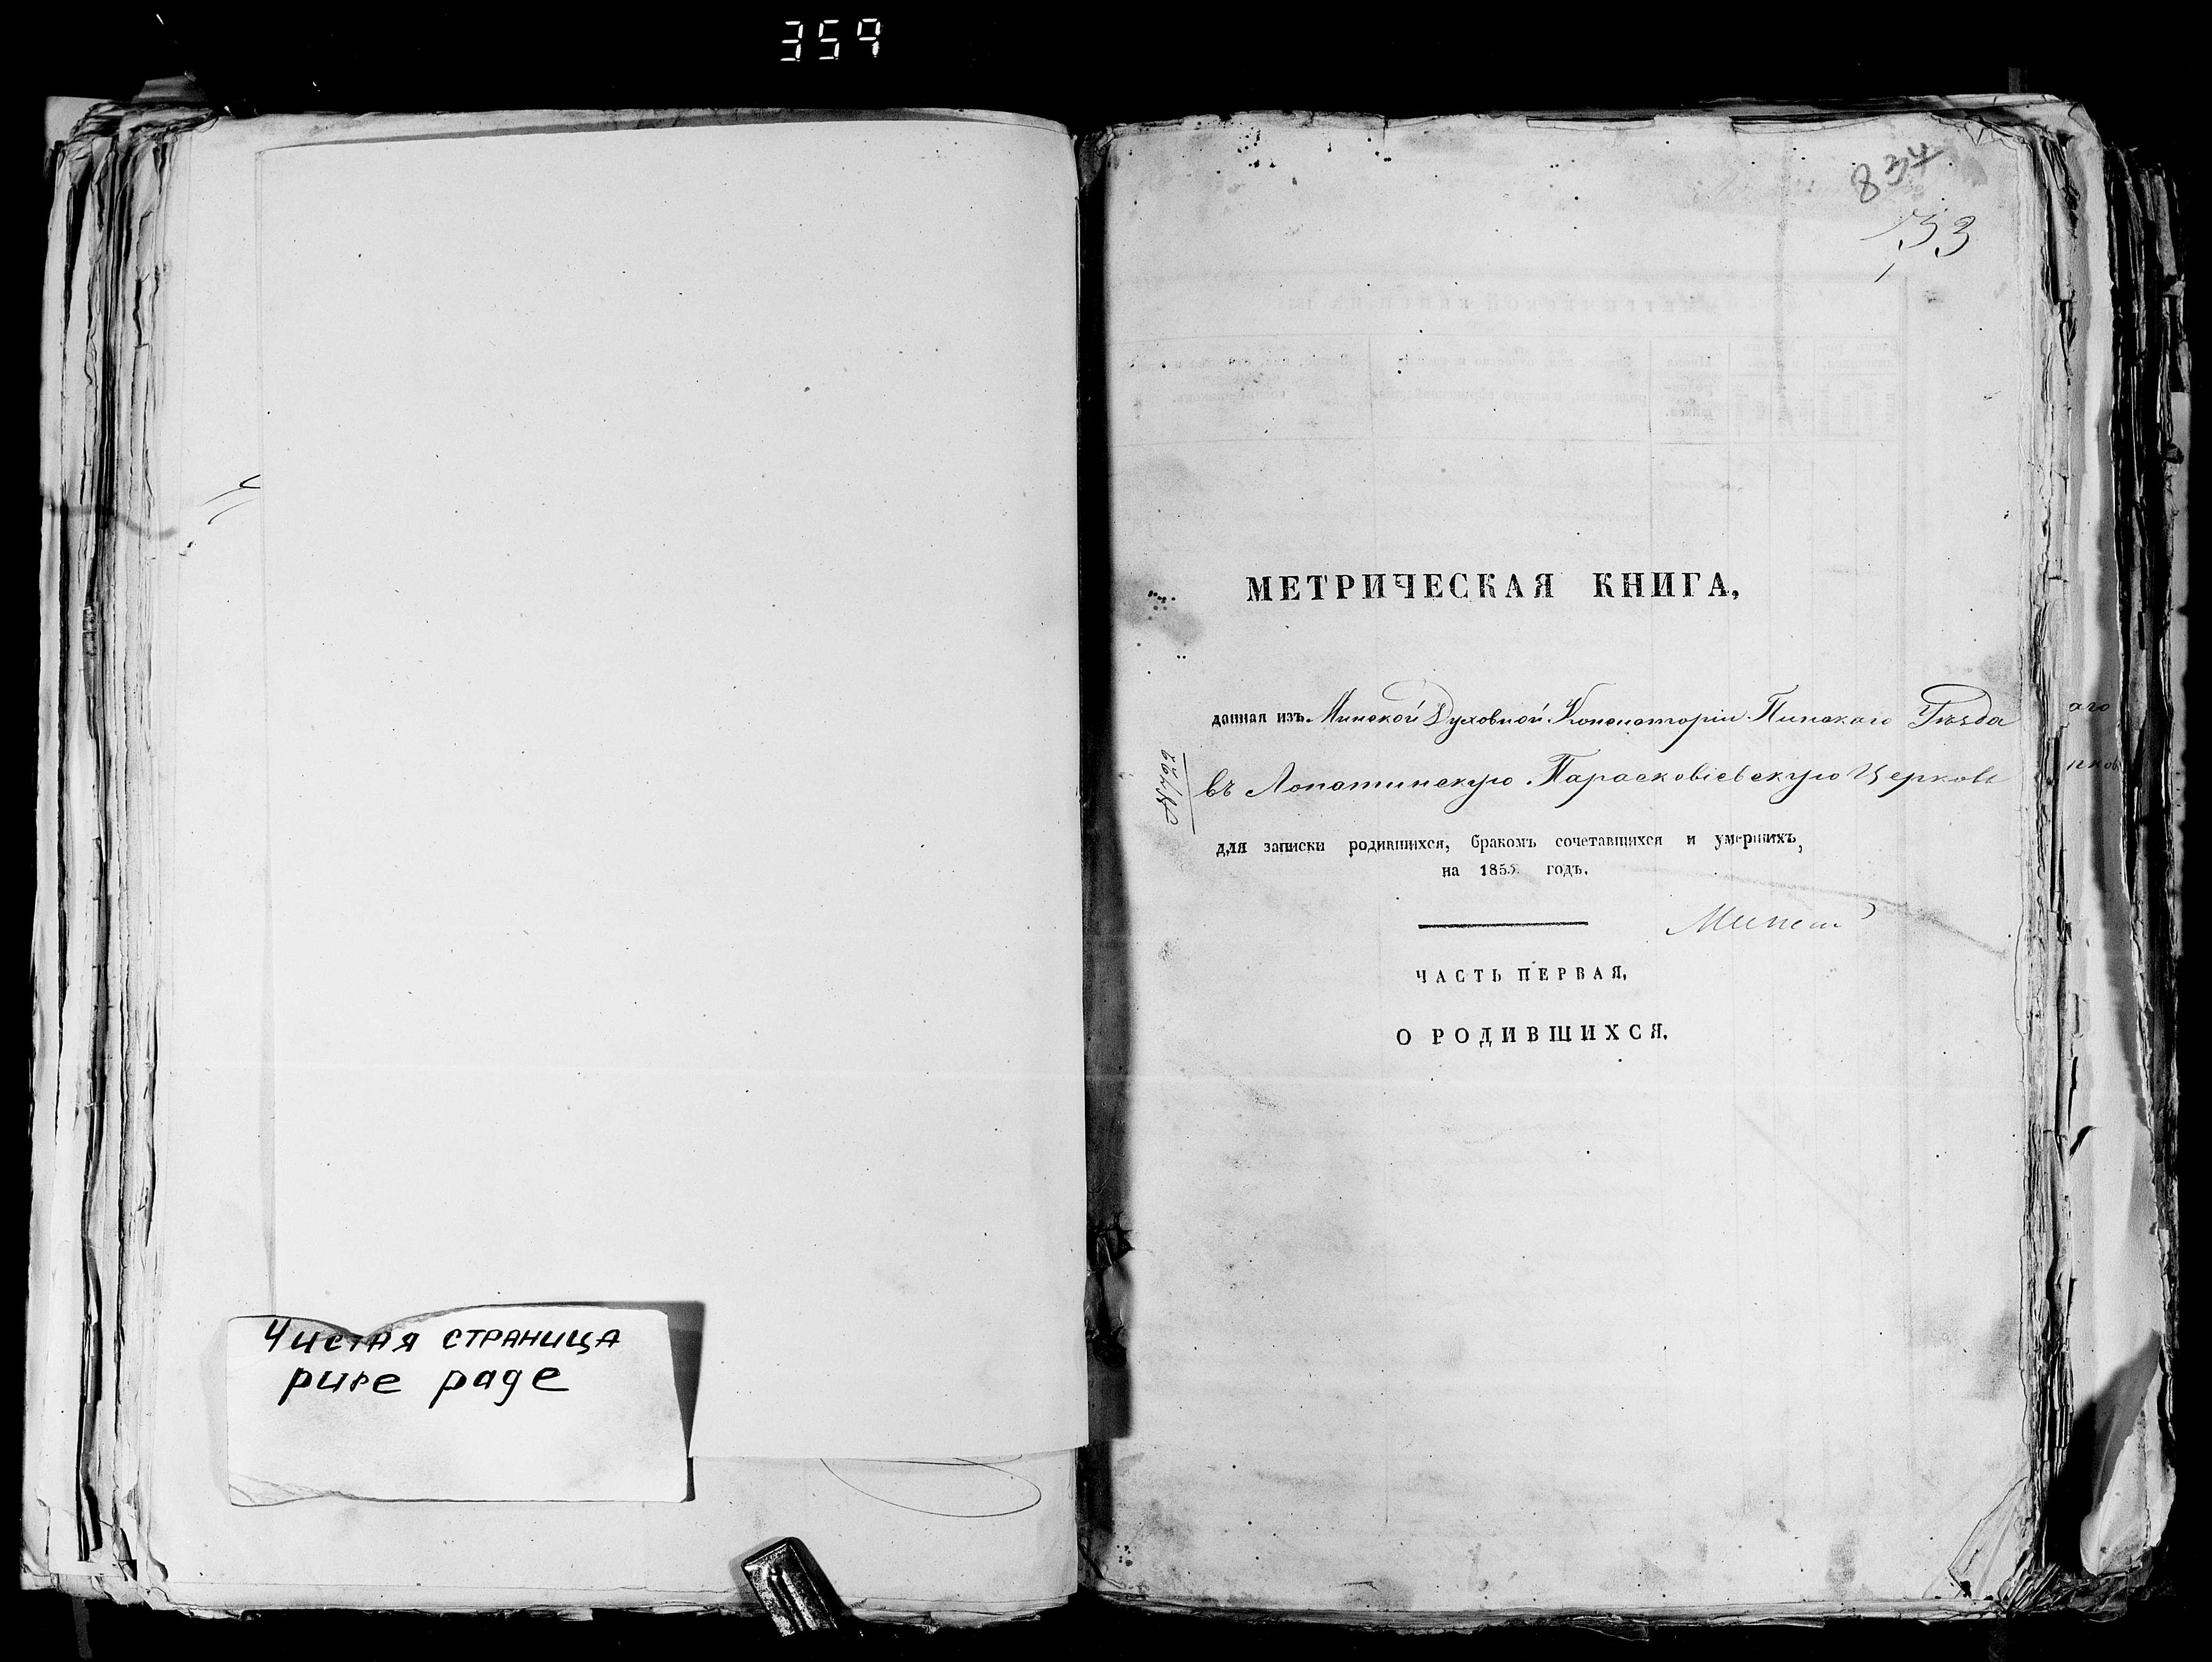 359
834
753
МЕТРИЧЕСКАЯ КНИГА,
данная изъ Минской Духовной Консисторіи Пинскаго Уѣзда
въ Лопатинскую Парасковіевскую Церковь
для записки родившихся, бракомъ сочетавшихся и умершихъ,
на 1855 годъ.
ЧАСТЬ ПЕРВАЯ,
О РОДИВШИХСЯ.
аго
Чистая страница
pure page